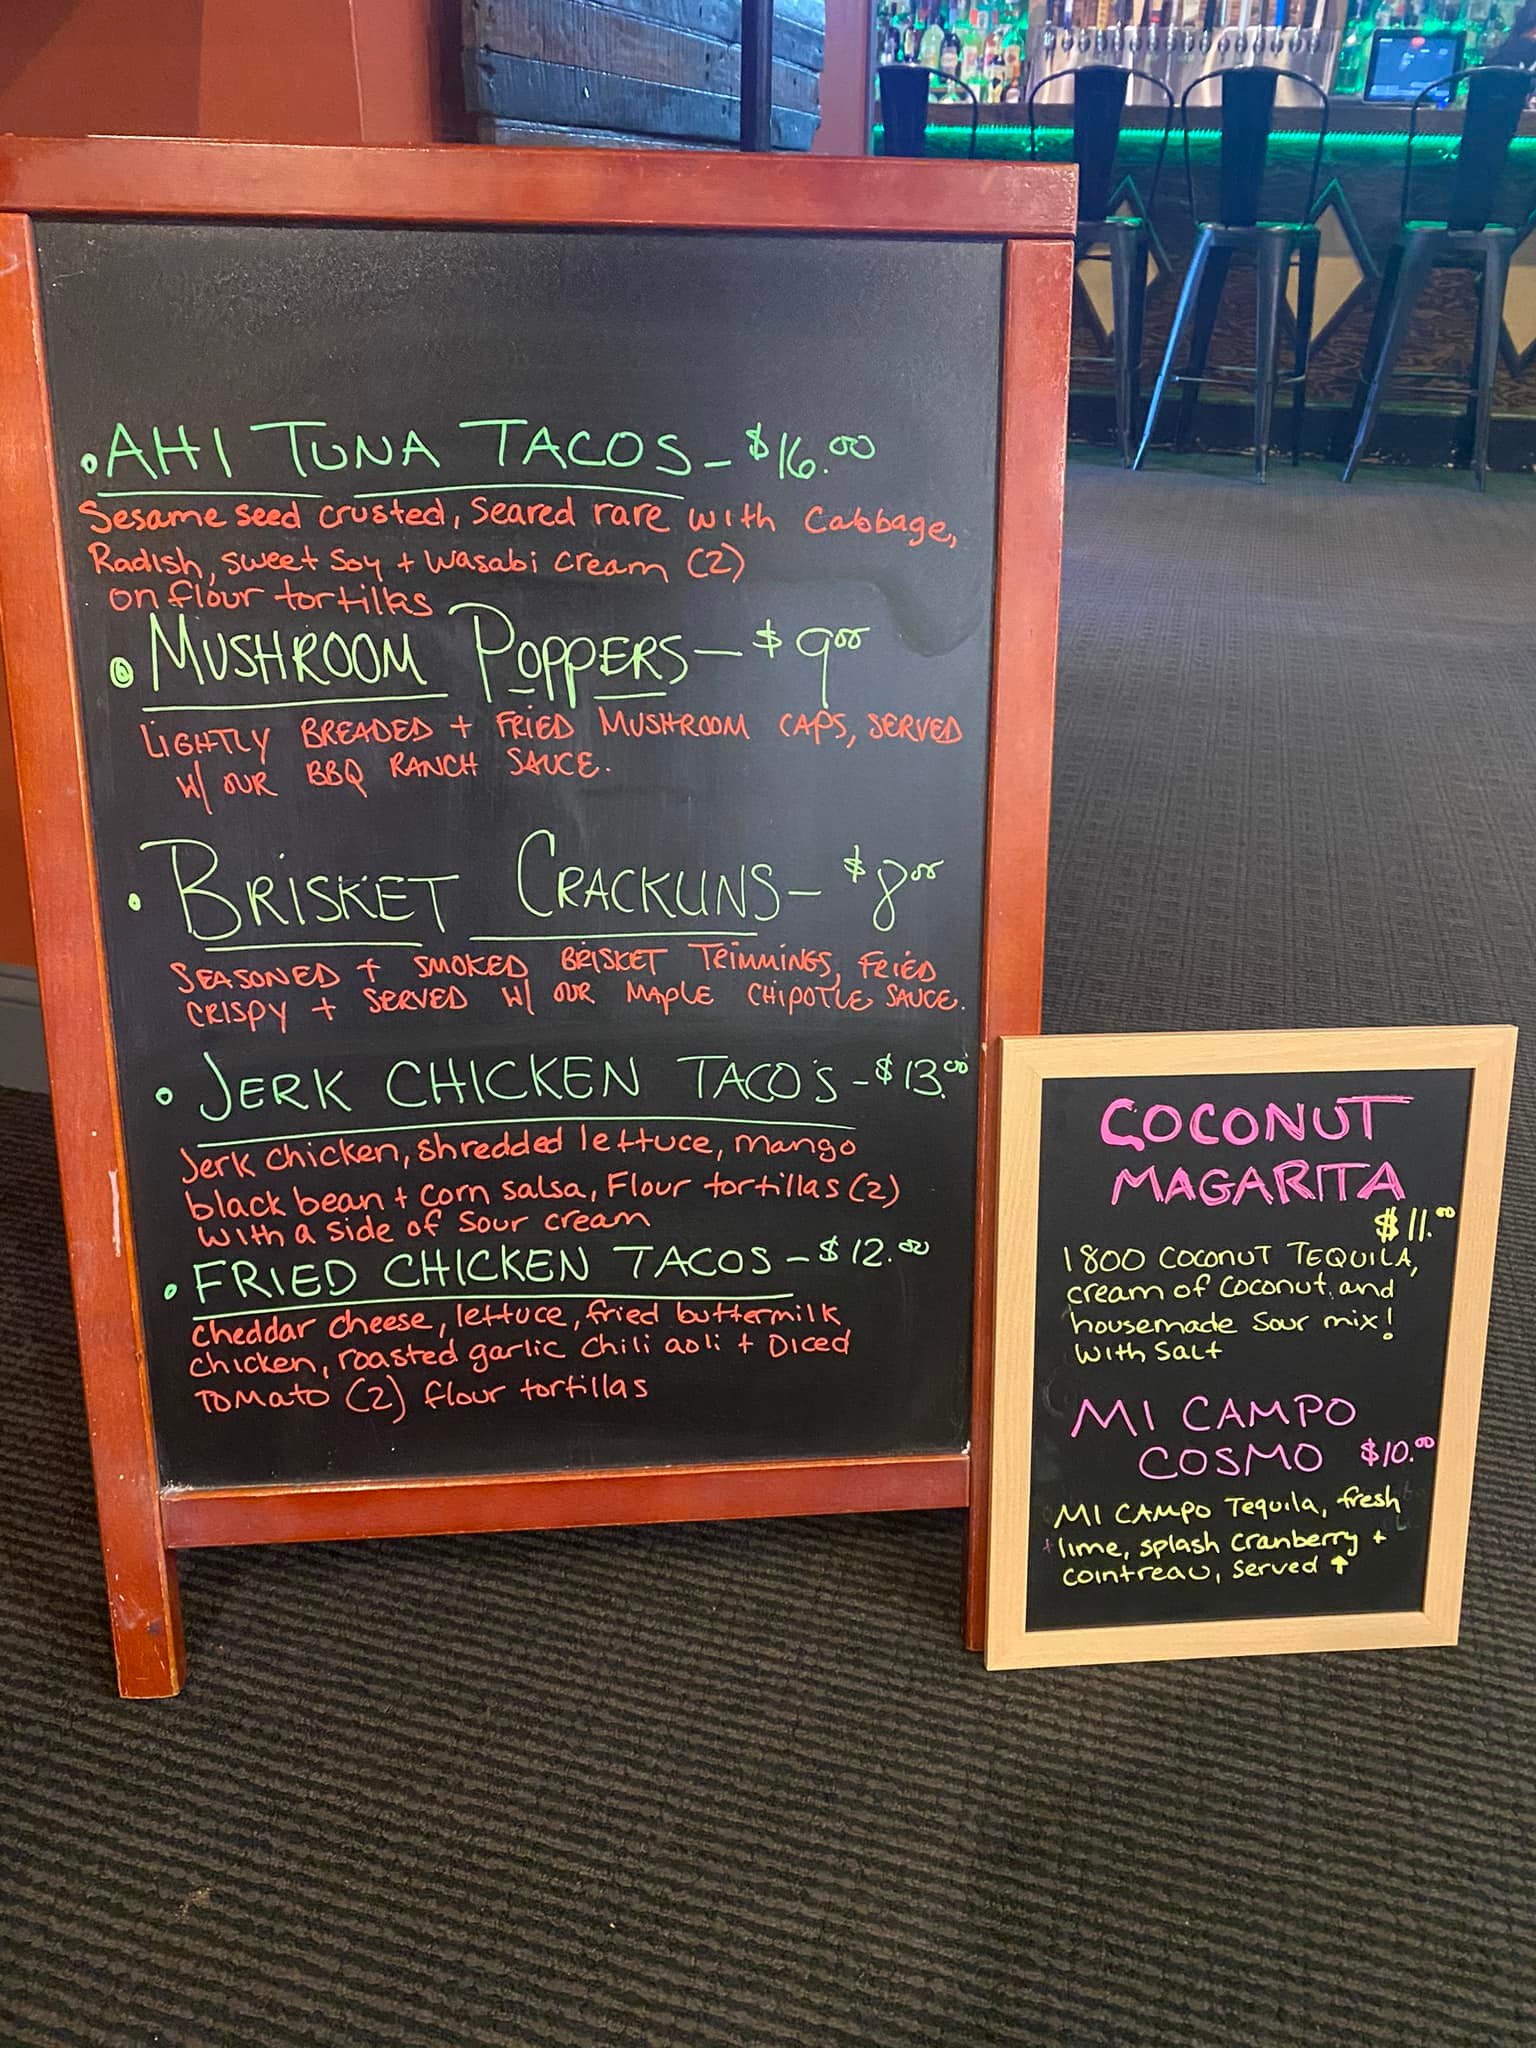 AHI TUNA TACOS - $16.00
Sesame seed crusted, Seared rare with Cabbage,
Radish, sweet Soy + Wasabi Cream (2)
on flour tortillas
MUSHROOM POPPERS - $9.00
LIGHTLY BREADED + FRIED MUSHROOM CAPS, SERVED
W/ OUR BBQ RANCH SAUCE.
BRISKET CRACKLINS - $8.00
SEASONED + SMOKED BRISKET TRIMMINGS, FRIED
CRISPY + SERVED W/ OUR MAPLE CHIPOTLE SAUCE.
JERK CHICKEN TACO'S - $13.00
Jerk chicken, shredded lettuce, mango
black bean + corn salsa, Flour tortillas (2)
With a side of Sour cream
FRIED CHICKEN TACOS - $12.00
cheddar cheese, lettuce, fried buttermilk
chicken, roasted garlic Chili aoli + Diced
TOMATO (2) flour tortillas
COCONUT
MAGARITA
$11.00
1800 COCONUT TEQUILA,
cream of Coconut, and
housemade Sour mix!
With Salt
MI CAMPO
COSMO $10.00
MI CAMPO Tequila, fresh
lime, splash Cranberry +
Cointreau, Served ↑